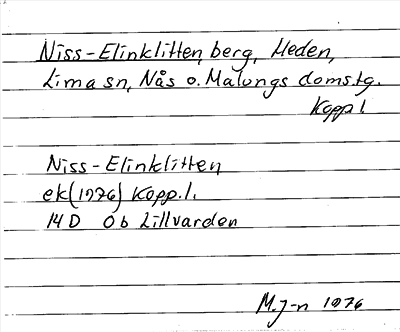 Niss-Elinklitten, berg, Heden,
Lima sn, Nås o. Malungs doms.tg.
Kopp l.
Niss-Elinklitten
ek (1976) Kopp.l.
14D 0b Lillvarden
M. J-n 1976